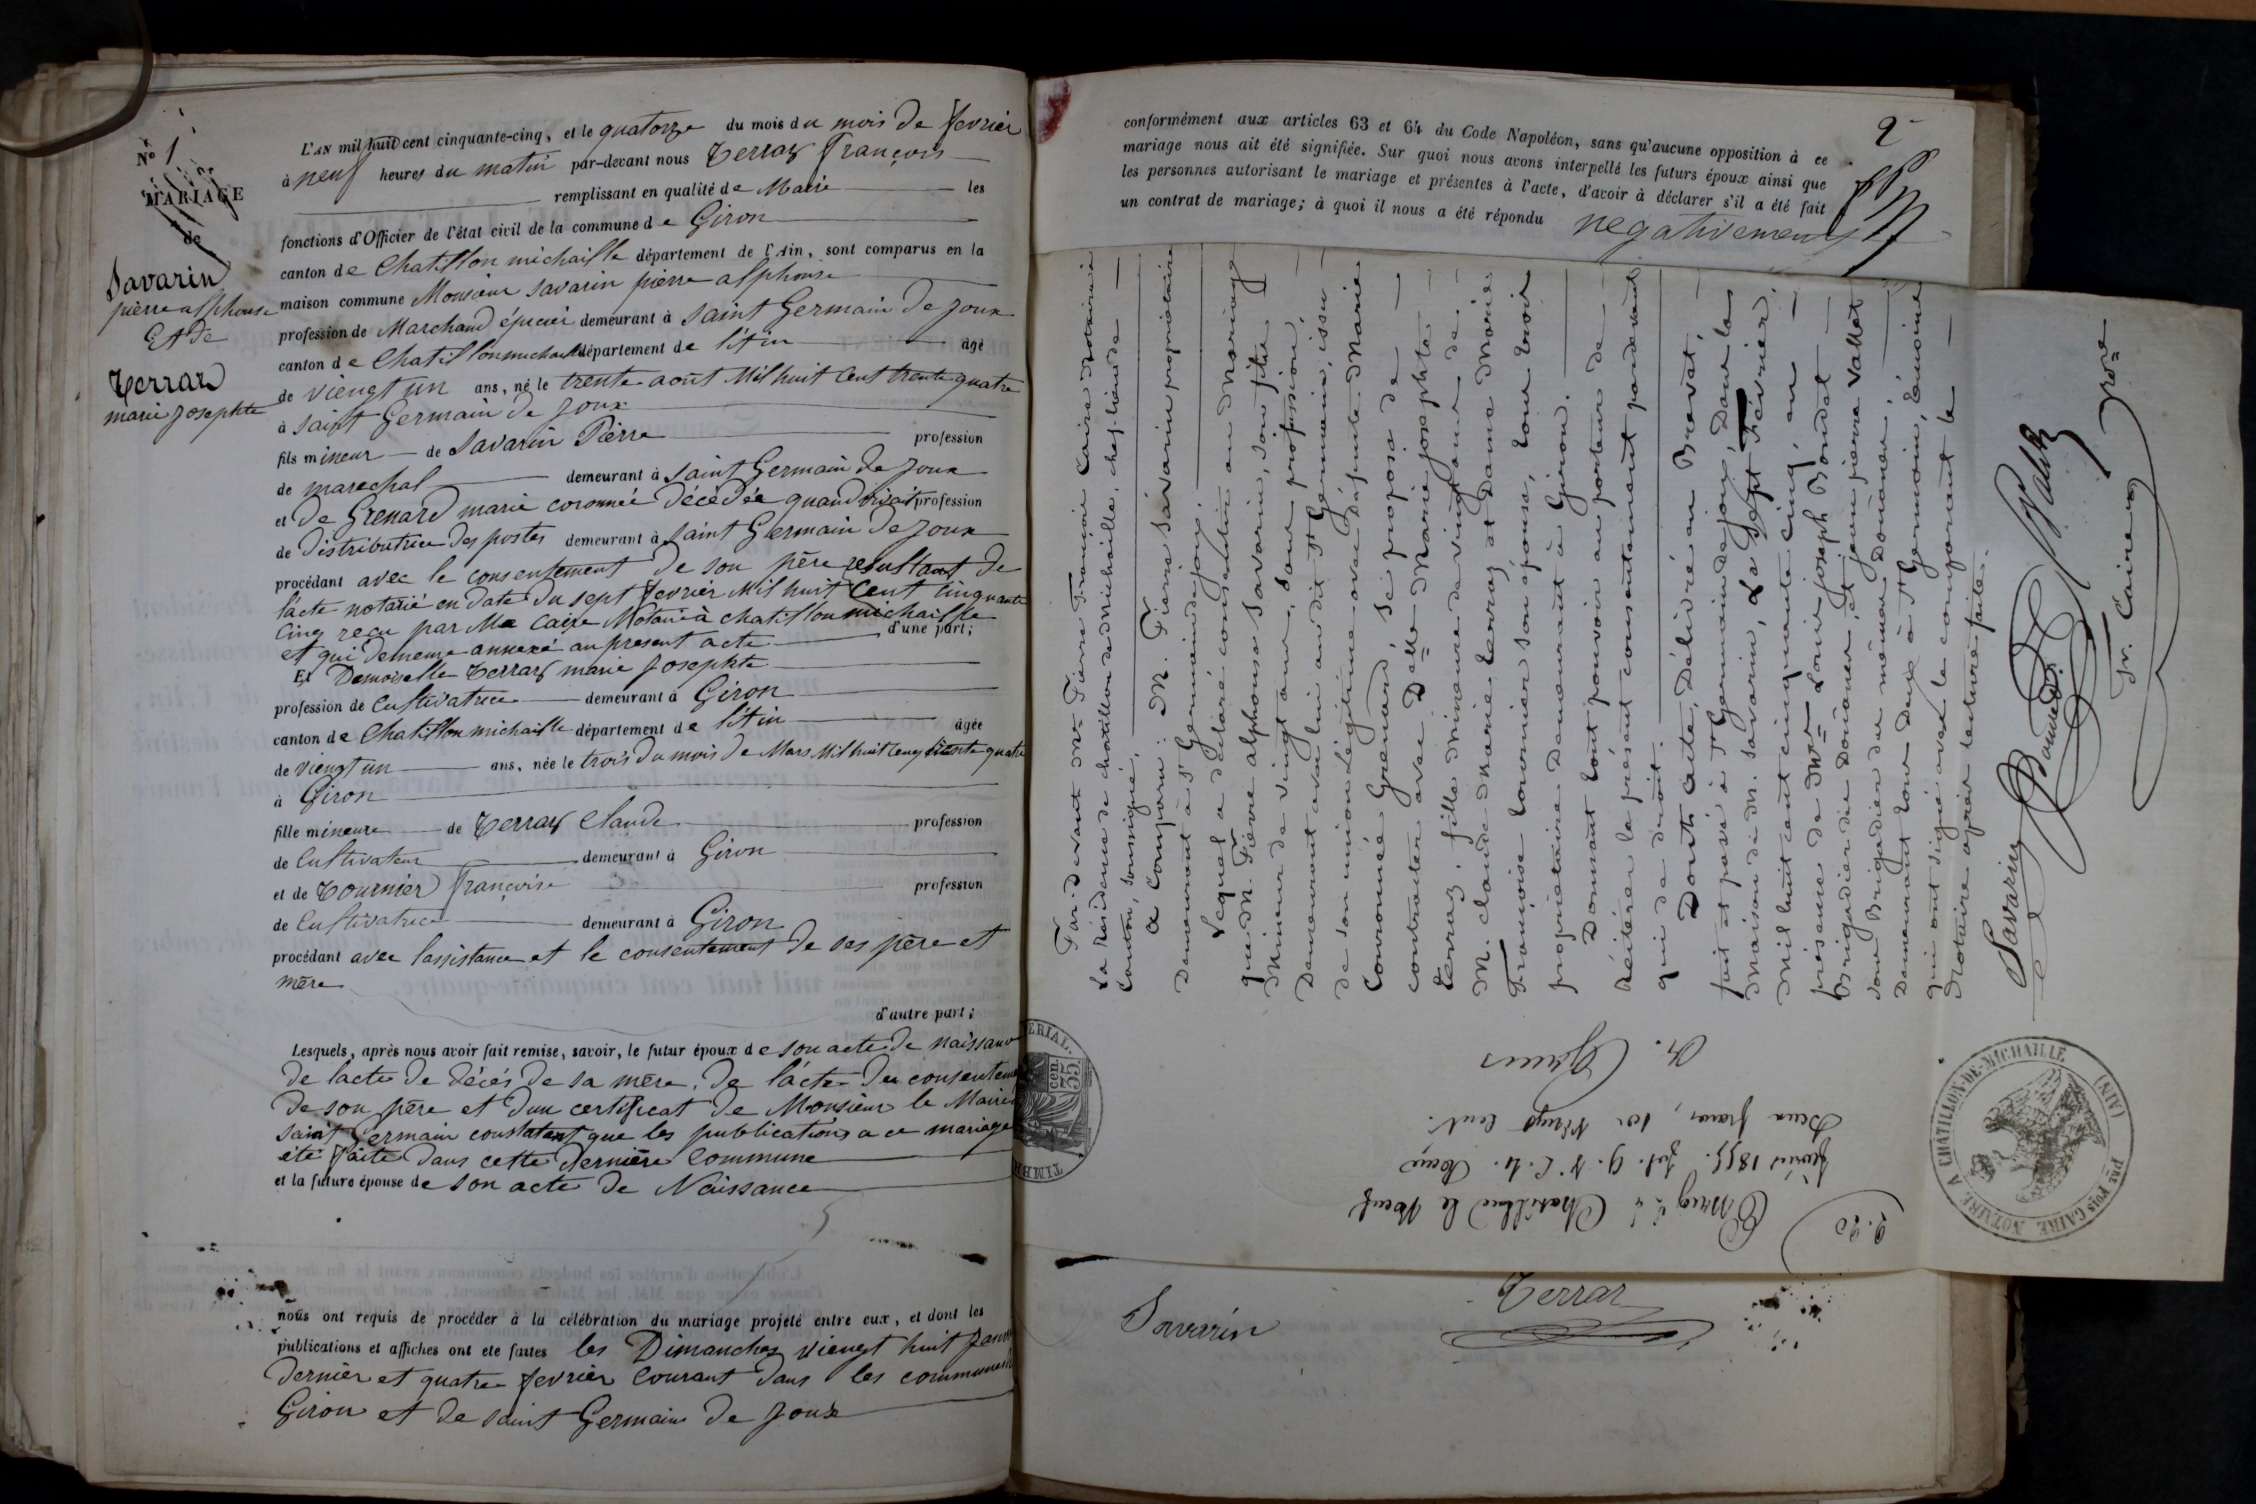 N° 1
MARIAGE
de
Savarin
pierre alphonse
Et de
Terraz
marie Josephte
L'AN mil huit cent cinquante-cinq, et le quatorze du mois du mois de fevrier
à neuf heures du matin par-devant nous Terraz François
remplissant en qualité de Maire les
fonctions d'Officier de l'état civil de la commune de Giron
canton de Chatillon michaille département de l'Ain, sont comparus en la
maison commune Monsieur savarin pierre alphonse
profession de Marchand épicier demeurant à saint Germain de Joux
canton de Chatillon michaille département de l'Ain âgé
de viengt un ans, né le trente août Mil huit Cent trente quatre
à saint Germain de Joux
fils mineur de Savarin Pierre profession
de marechal demeurant à saint Germain de Joux
et de Grenard marie coronnée décédée quand vivait profession
de distributrice des postes demeurant à saint Germain de Joux
procédant avec le consentement de son père resultant de
l'acte notarié en date du sept fevrier Mil huit Cent Cinquante
Cinq reçu par Me Caire Notaire à chatillon michaille
et qui demeure annexé au present acte d'une part;
Et Demoiselle Terraz marie Josephte
profession de Cultivatrice demeurant à Giron
canton de Chatillon michaille département de l'Ain âgée
de viengt un ans, née le trois du mois de Mars Mil huit Cent trente quatre
à Giron
fille mineure de Terraz Claude profession
de Cultivateur demeurant à Giron
et de Tournier Françoise profession
de Cultivatrice demeurant à Giron
procédant avec lassistance et le consentement de ses père et
mère
d'autre part;
Lesquels, après nous avoir fait remise, savoir, le futur époux de son acte de naissance
de lacte de décés de sa mère, de l'acte du consentement
de son père et d'un certificat de Monsieur le Maire
saint Germain constatant que les publications a ce mariage
été faite dans cette dernière Commune
et la future épouse de son acte de Naissance
nous ont requis de procéder à la célébration du mariage projeté entre eux, et dont les
publications et affiches ont été faites les Dimanches viengt huit Janvier
dernier et quatre fevrier Courant dans les communes de
Giron et de saint Germain de Joux
conformément aux articles 63 et 64 du Code Napoléon, sans qu'aucune opposition à ce
mariage nous ait été signifiée. Sur quoi nous avons interpellé les futurs époux ainsi que
les personnes autorisant le mariage et présentes à l'acte, d'avoir à déclarer s'il a été fait
un contrat de mariage; à quoi il nous a été répondu negativement
2
Par-devant Me Pierre François Caire Notaire à
la Résidence de chatillon de Michaille, chef-lieu de
Canton, soussigné,
a Comparu: M. Pierre Savarin propriétaire
Demeurant à St Germain de joux.
Lequel a déclaré consentir au mariage
que M. Pierre alphonse Savarin, son fils
Mineur de vingt ans, sans profession,
Demeurant avec lui au dit St Germain, issu
de son union légitime avec défunte Marie
Couronnée Grenard, se propose de
contracter avec Delle Marie josephte
terraz, fille mineure de vingt ans de
M. claude marie terraz et dame Marie
Françoise tournier son épouse, tous trois
propriétaire demeurant à Giron.
Donnant tout pouvoir au porteur de
Réitérer le présent consentement pardevant
qui de droit.
Dont acte, Délivré en Brevet,
fait et passé à St Germain de joux, Dans la
Maison de M. savarin, Le Sept Février
Mil huit cent cinquante cinq, en
présence de Mrs Louis joseph Bondat
Brigadier de Douanes, et jean pierre Vallet
sous Brigadier des mêmes Douanes,
Demeurant tous deux à St Germain, témoins
qui ont signé avec le comparant le
Notaire après lecture faite.
Savarin
Fr. Caire
TIMBRE IMPERIAL.
35 cen.
Enregé à Chatillon le Neuf
février 1855. fol. 9. Reçu
Deux francs, dix Vingt Cent.
2.20
Pre FOIS CAIRE NOTAIRE A CHATILLON-DE-MICHAILLE (AIN)
Savarin
Terraz